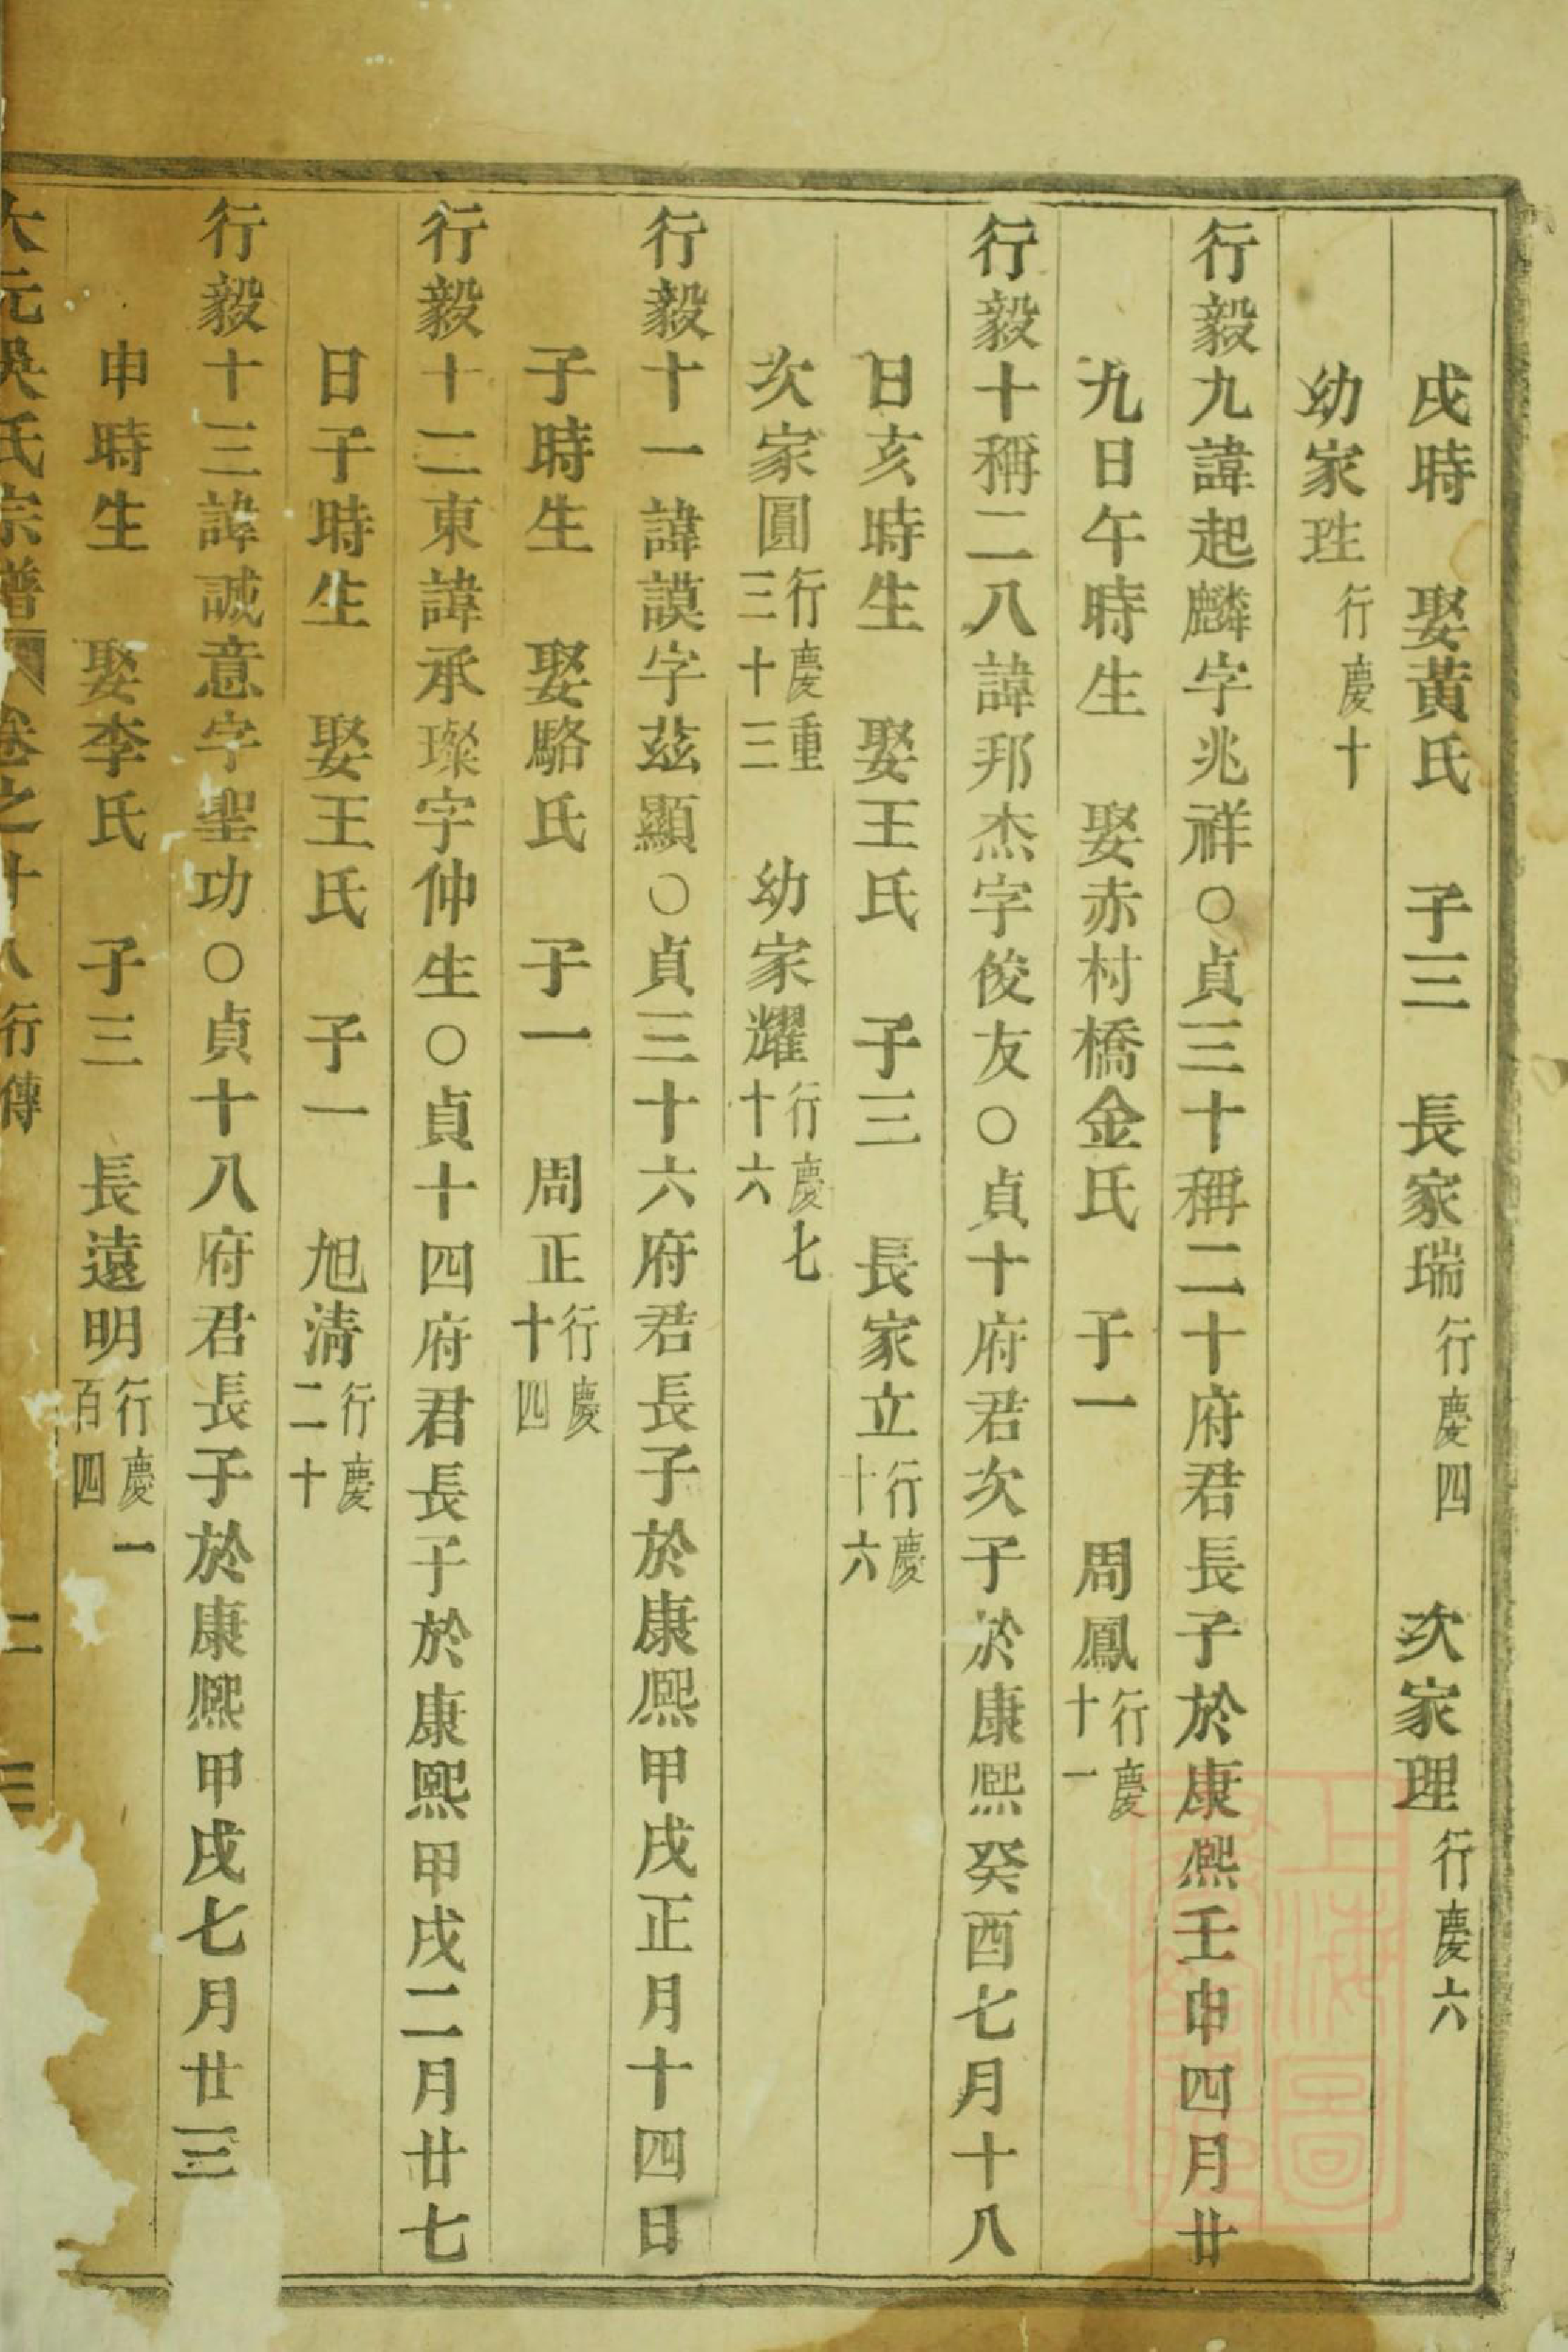 戌時　娶黃氏　子三　長家瑞行慶四　次家理行慶六
幼家珄行慶十
行毅九諱起麟字兆祥○貞三十稱二十府君長子於康熙壬申四月廿
九日午時生　娶赤村橋金氏　子一　周鳳行慶十一
行毅十稱二八諱邦杰字俊友○貞十府君次子於康熙癸酉七月十八
日亥時生　娶王氏　子三　長家立行慶十六
次家圓行慶重三十三　幼家耀行慶七十六
行毅十一諱謨字茲顯○貞三十六府君長子於康熙甲戌正月十四日
子時生　娶駱氏　子一　周正行慶十四
行毅十二東諱承璨字仲生○貞十四府君長子於康熙甲戌二月廿七
日子時生　娶王氏　子一　旭清行慶二十
行毅十三諱誠意字聖功○貞十八府君長子於康熙甲戌七月廿三
申時生　娶李氏　子三　長遠明行慶一百四
大元吳氏宗譜　卷之廿八行傳　二　三
上海圖